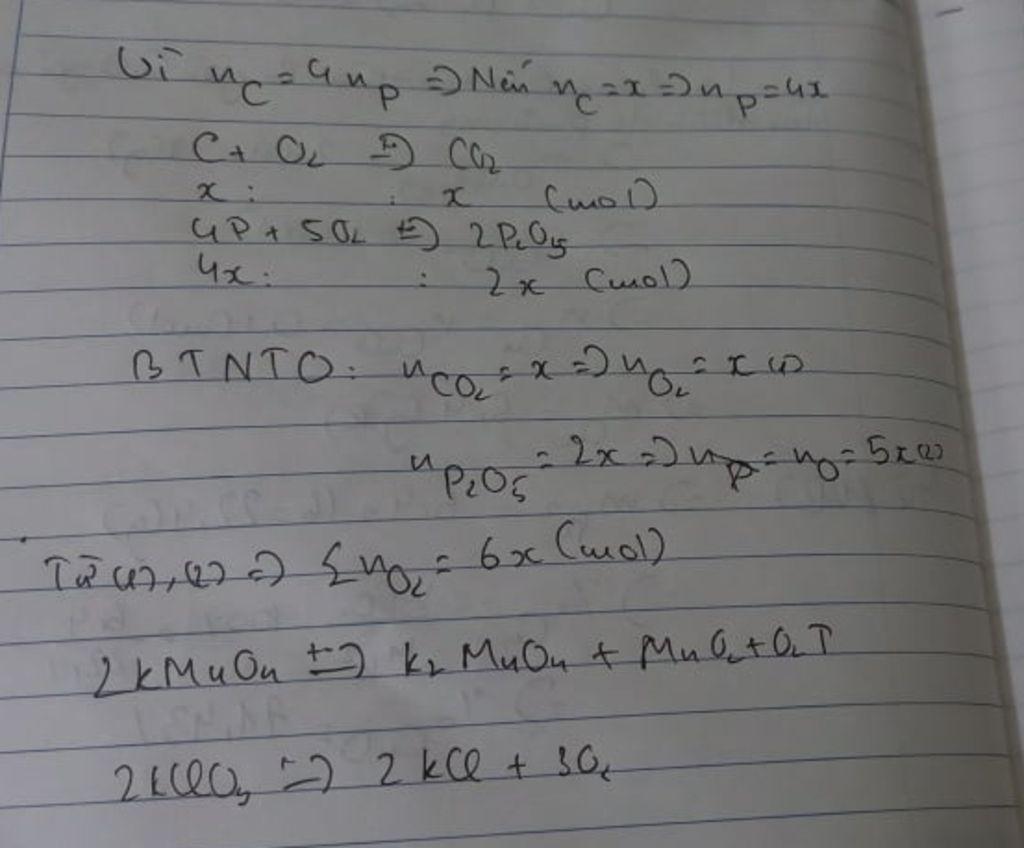 Vì n_C = 4n_P => Nếu n_C = x => n_P = 4x
C + O₂ →(t°) CO₂
x : : x (mol)
4P + 5O₂ →(t°) 2P₂O₅
4x : : 2x (mol)
BTNTO: n_CO₂ = x => n_O₂ = x (1)
n_P₂O₅ = 2x => n_P = n_O = 5x (2)
Từ (1), (2) => Σn_O₂ = 6x (mol)
2KMnO₄ →(t°) K₂MnO₄ + MnO₂ + O₂↑
2KClO₃ →(t°) 2KCl + 3O₂